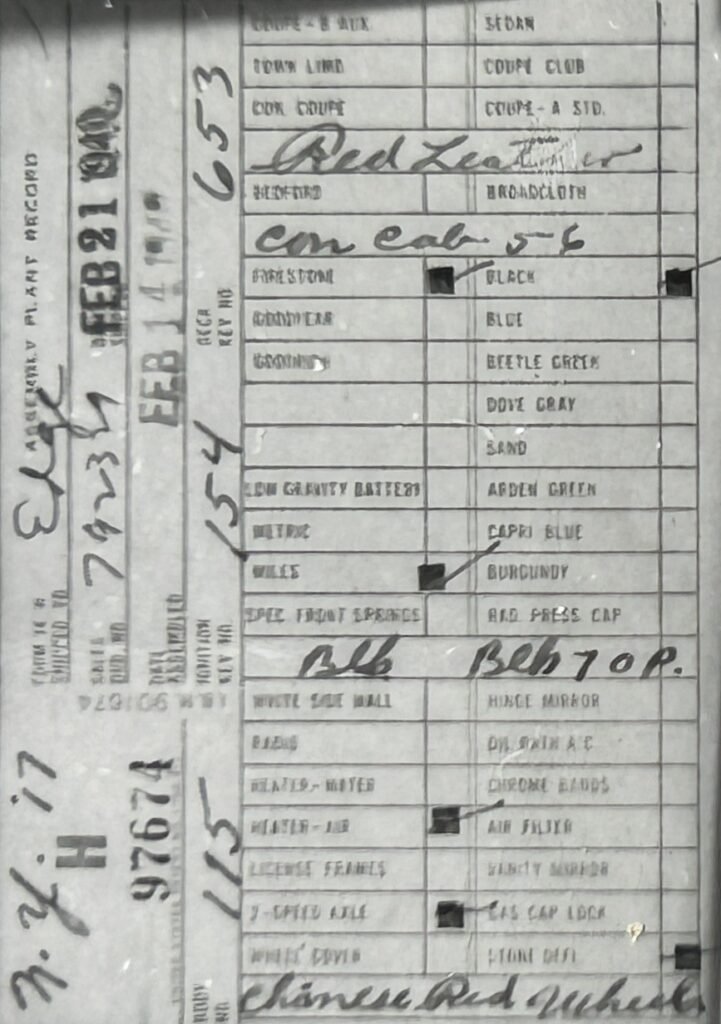 COUPE - B AUX. SEDAN
TOWN LIMO COUPE CLUB
CON COUPE COUPE - A STD.
Red Leather
BEDFORD BROADCLOTH
Con Cab 5-6
FIRESTONE BLACK
GOODYEAR BLUE
GOODRICH BEETLE GREEN
DOVE GRAY
SAND
LOW GRAVITY BATTERY ARDEN GREEN
METRIC CAPRI BLUE
MILES BURGUNDY
SPEC FRONT SPRINGS RAD PRESS CAP
Blk Blk TOP.
WHITE SIDE WALL HINGE MIRROR
RADIO OIL BATH A C
HEATER - WATER CHROME BANDS
HEATER - AIR AIR FILTER
LICENSE FRAMES VANITY MIRROR
2-SPEED AXLE GAS CAP LOCK
WHEEL COVER STONE DEFL
Chinese Red Wheels
ASSEMBLY PLANT RECORD
FORM 18
SHIPPED TO
Edge
N.Y. 17
SALES
ORD. NO.
FEB 21 1940
H
DATE
ASSEMBLED
FEB 14 1940
97674
IGNITION
KEY NO.
154
DECK
KEY NO.
653
BODY
NO.
115